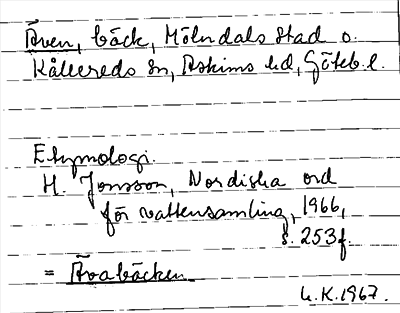 Åven, bäck, Mölndals stad o.
Kållereds sn, Askims hd, Göteb. l.
Etymologi.
H. Jonsson, Nordiska ord
för vattensamling, 1966,
s. 253f.
= Åvabäcken
L.K. 1967.